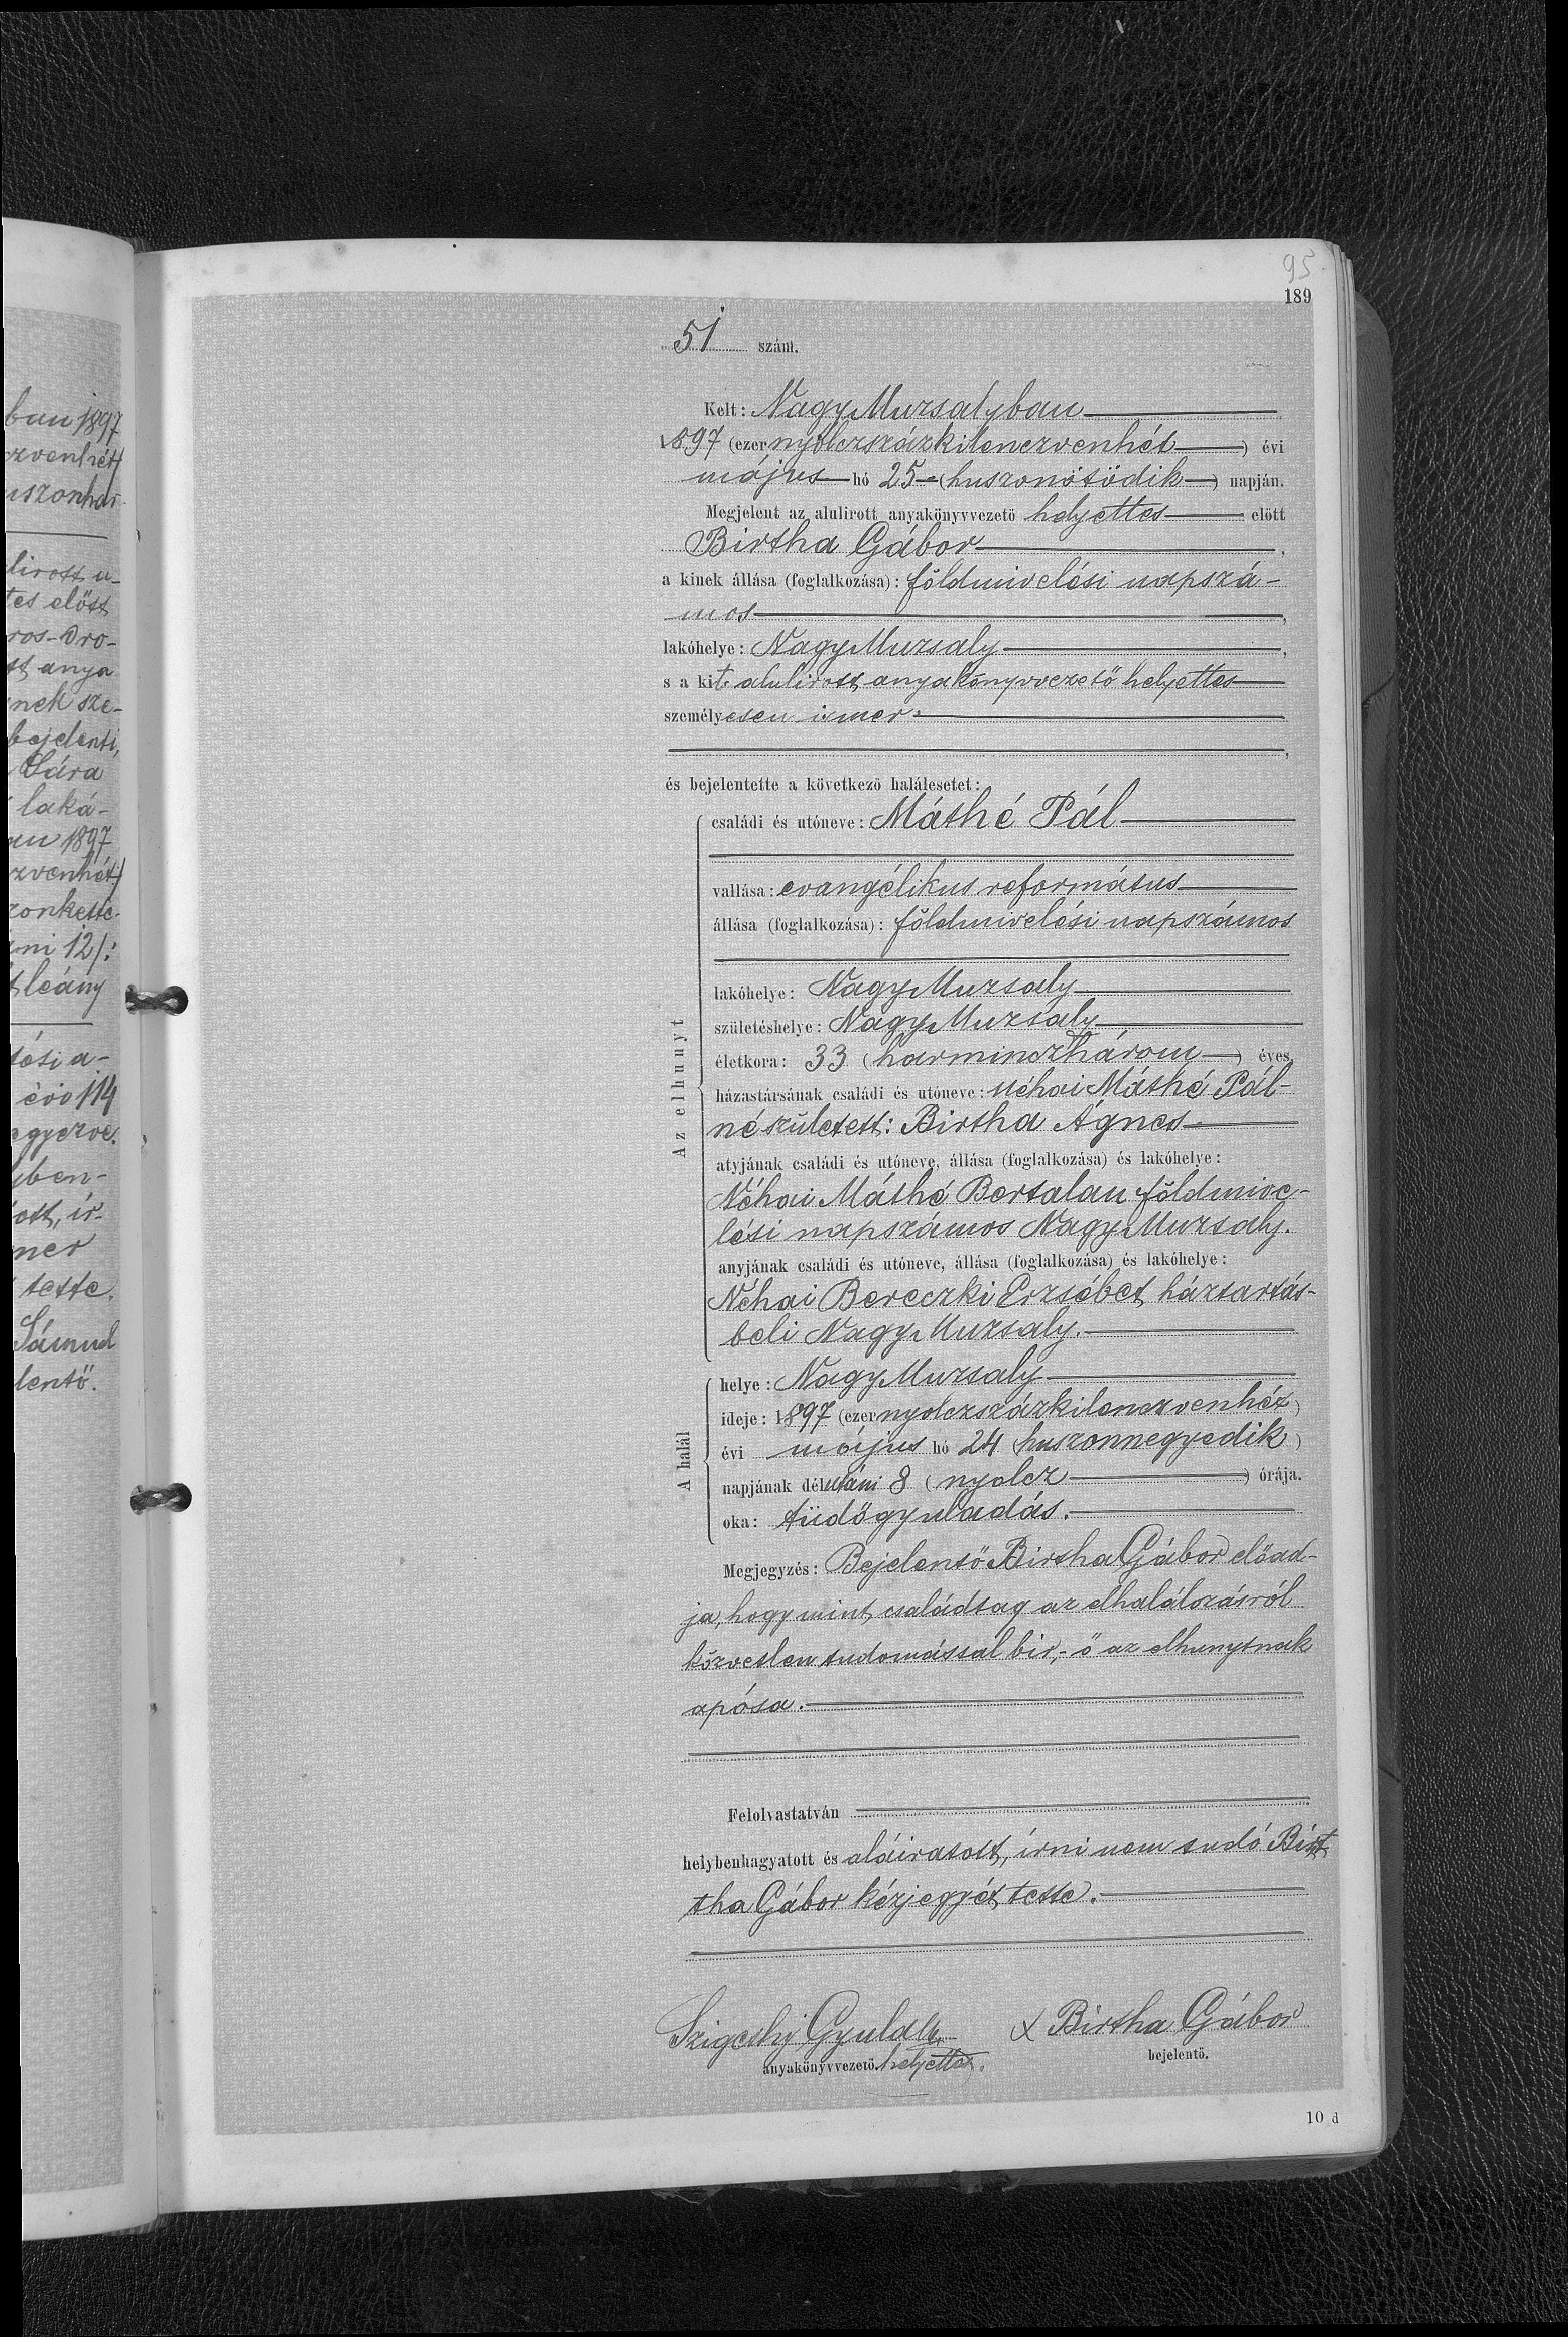 ban 1897
zvenhét)
uszonhar-
lirott a-
tes előtt
ros-Oro-
tt anya
nek sze-
bejelenti,
Sára
laká-
an 1897
zvenhét)
zonkette-
ni 12/:
leány
tési a-
évi 114
egyezve.
ben-
ott, ír-
mer
tette.
Sámuel
lentő.
95
189
51 szám.
Kelt: Nagy Muzsalyban
1897 (ezer nyolczszázkilenczvenhét) évi
május hó 25 (huszonötödik) napján.
Megjelent az alulirott anyakönyvvezető helyettes előtt
Birtha Gábor,
a kinek állása (foglalkozása): földmivelési napszá-
mos,
lakóhelye: Nagy Muzsaly,
s a kit alulirott anyakönyvvezető helyettes
személyesen ismer.
és bejelentette a következő halálesetet:
Az elhunyt
családi és utóneve: Máthé Pál
vallása: evangélikus református
állása (foglalkozása): földmivelési napszámos
lakóhelye: Nagy Muzsaly
születéshelye: Nagy Muzsaly
életkora: 33 (harminczhárom) éves,
házastársának családi és utóneve: néhai Máthé Pál-
né született: Birtha Ágnes
atyjának családi és utóneve, állása (foglalkozása) és lakóhelye:
Néhai Máthé Bertalan földmive-
lési napszámos Nagy Muzsaly.
anyjának családi és utóneve, állása (foglalkozása) és lakóhelye:
Néhai Bereczki Erzsébet háztartás-
beli Nagy Muzsaly.
A halál
helye: Nagy Muzsaly
ideje: 1897 (ezer nyolczszázkilenczvenhét)
évi május hó 24 (huszonnegyedik)
napjának délutáni 8 (nyolcz) órája.
oka: tüdőgyuladás.
Megjegyzés: Bejelentő Birtha Gábor előad-
ja, hogy mint családtag az elhalálozásról
közvetlen tudomással bir, - ő az elhunytnak
apósa.
Felolvastatván
helybenhagyatott és aláiratott, írni nem tudó Birt
tha Gábor kézjegyét tette.
Szigethy Gyula
anyakönyvvezető helyettes.
x Birtha Gábor
bejelentő.
10 d